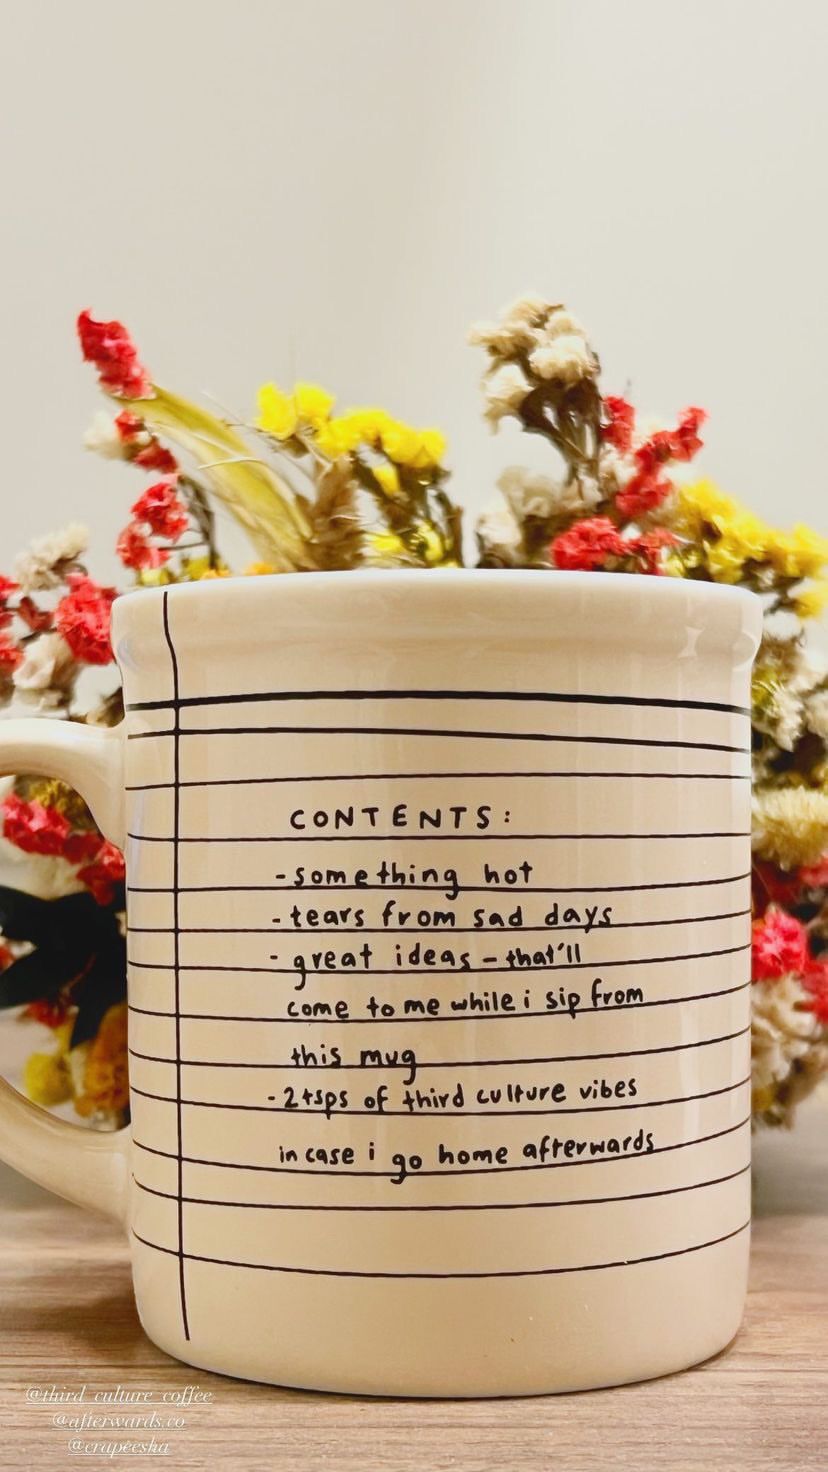 CONTENTS:
- something hot
- tears from sad days
- great ideas - that'll
come to me while i sip from
this mug
- 2 tsps of third culture vibes
in case i go home afterwards
@third_culture_coffee
@afterwards.co
@crupeesha